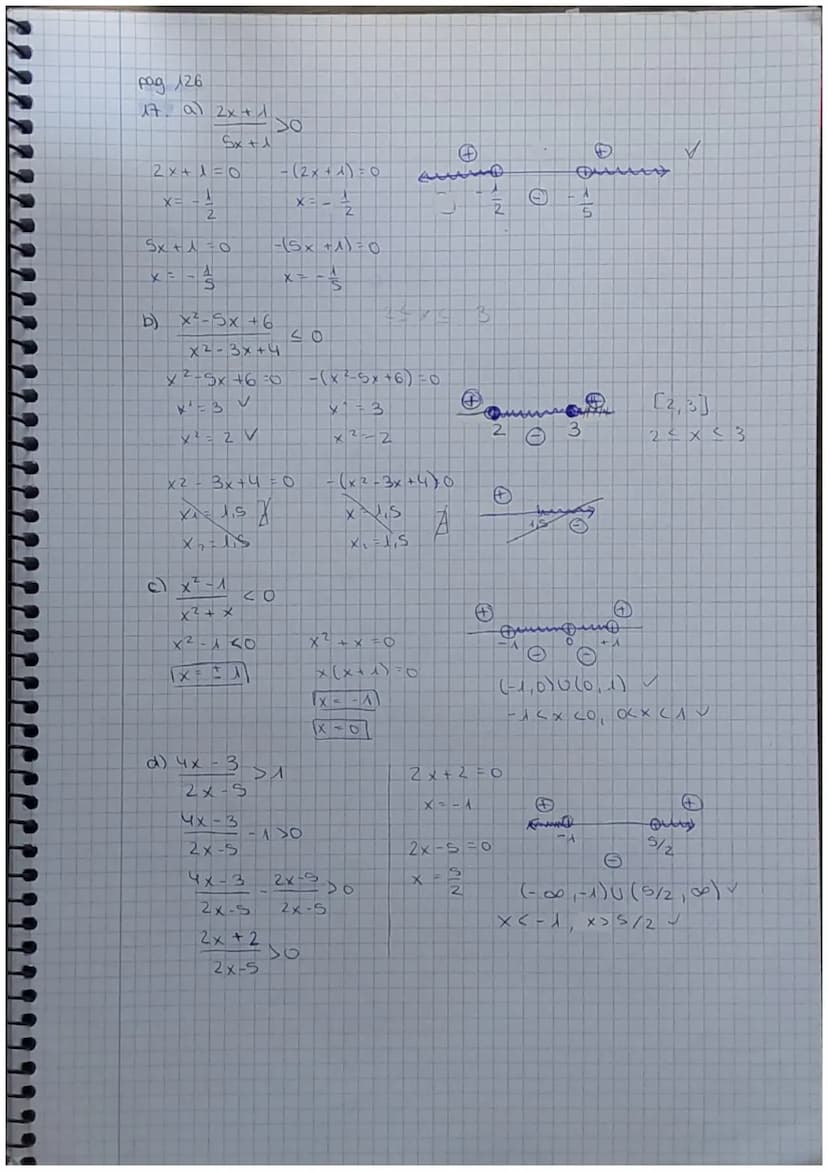 pag 126
17. a) (2x+1)/(5x+1) > 0
2x+1=0 -(2x+1)=0
x = -1/2 x = -1/2
5x+1=0 -(5x+1)=0
x = -1/5 x = -1/5
⊕ ⊕ ✓
-1/2 ⊖ -1/5
b) (x²-5x+6)/(x²-3x+4) ≤ 0
x²-5x+6=0 -(x²-5x+6)=0
x¹=3 ✓ x¹=3
x²=2 ✓ x²=2
⊕ ⊕ [2,3]
2 ⊖ 3 2 ≤ x ≤ 3
x2-3x+4=0 -(x²-3x+4)=0
x₁=1,5 x=1,5
x₂=1,5 x₁=1,5
⊕
1,5 ⊖
c) (x²-1)/(x²+x) < 0
x²-1<0 x²+x=0
x=±1 x(x+1)=0
x=-1
x=0
⊕ ⊕
-1 0 +1
⊖ ⊖
(-1,0)∪(0,1) ✓
-1<x<0, 0<x<1 ✓
d) (4x-3)/(2x-5) > 1
(4x-3)/(2x-5) - 1 > 0
(4x-3)/(2x-5) - (2x-5)/(2x-5) > 0
(2x+2)/(2x-5) > 0
2x+2=0
x=-1
2x-5=0
x = 5/2
⊕ ⊕
-1 5/2
⊖
(-∞,-1)∪(5/2,∞) ✓
x<-1, x>5/2 ✓